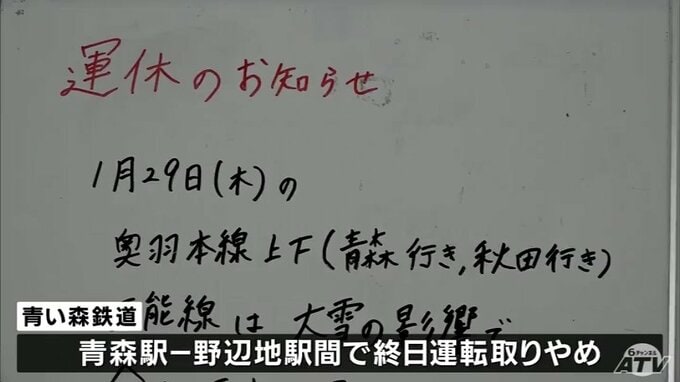 運休のお知らせ
1月29日(木)の
奥羽本線上下(青森行き,秋田行き)
能線は大雪の影響で
青い森鉄道
青森駅ー野辺地駅間で終日運転取りやめ
6チャンネル
ATV